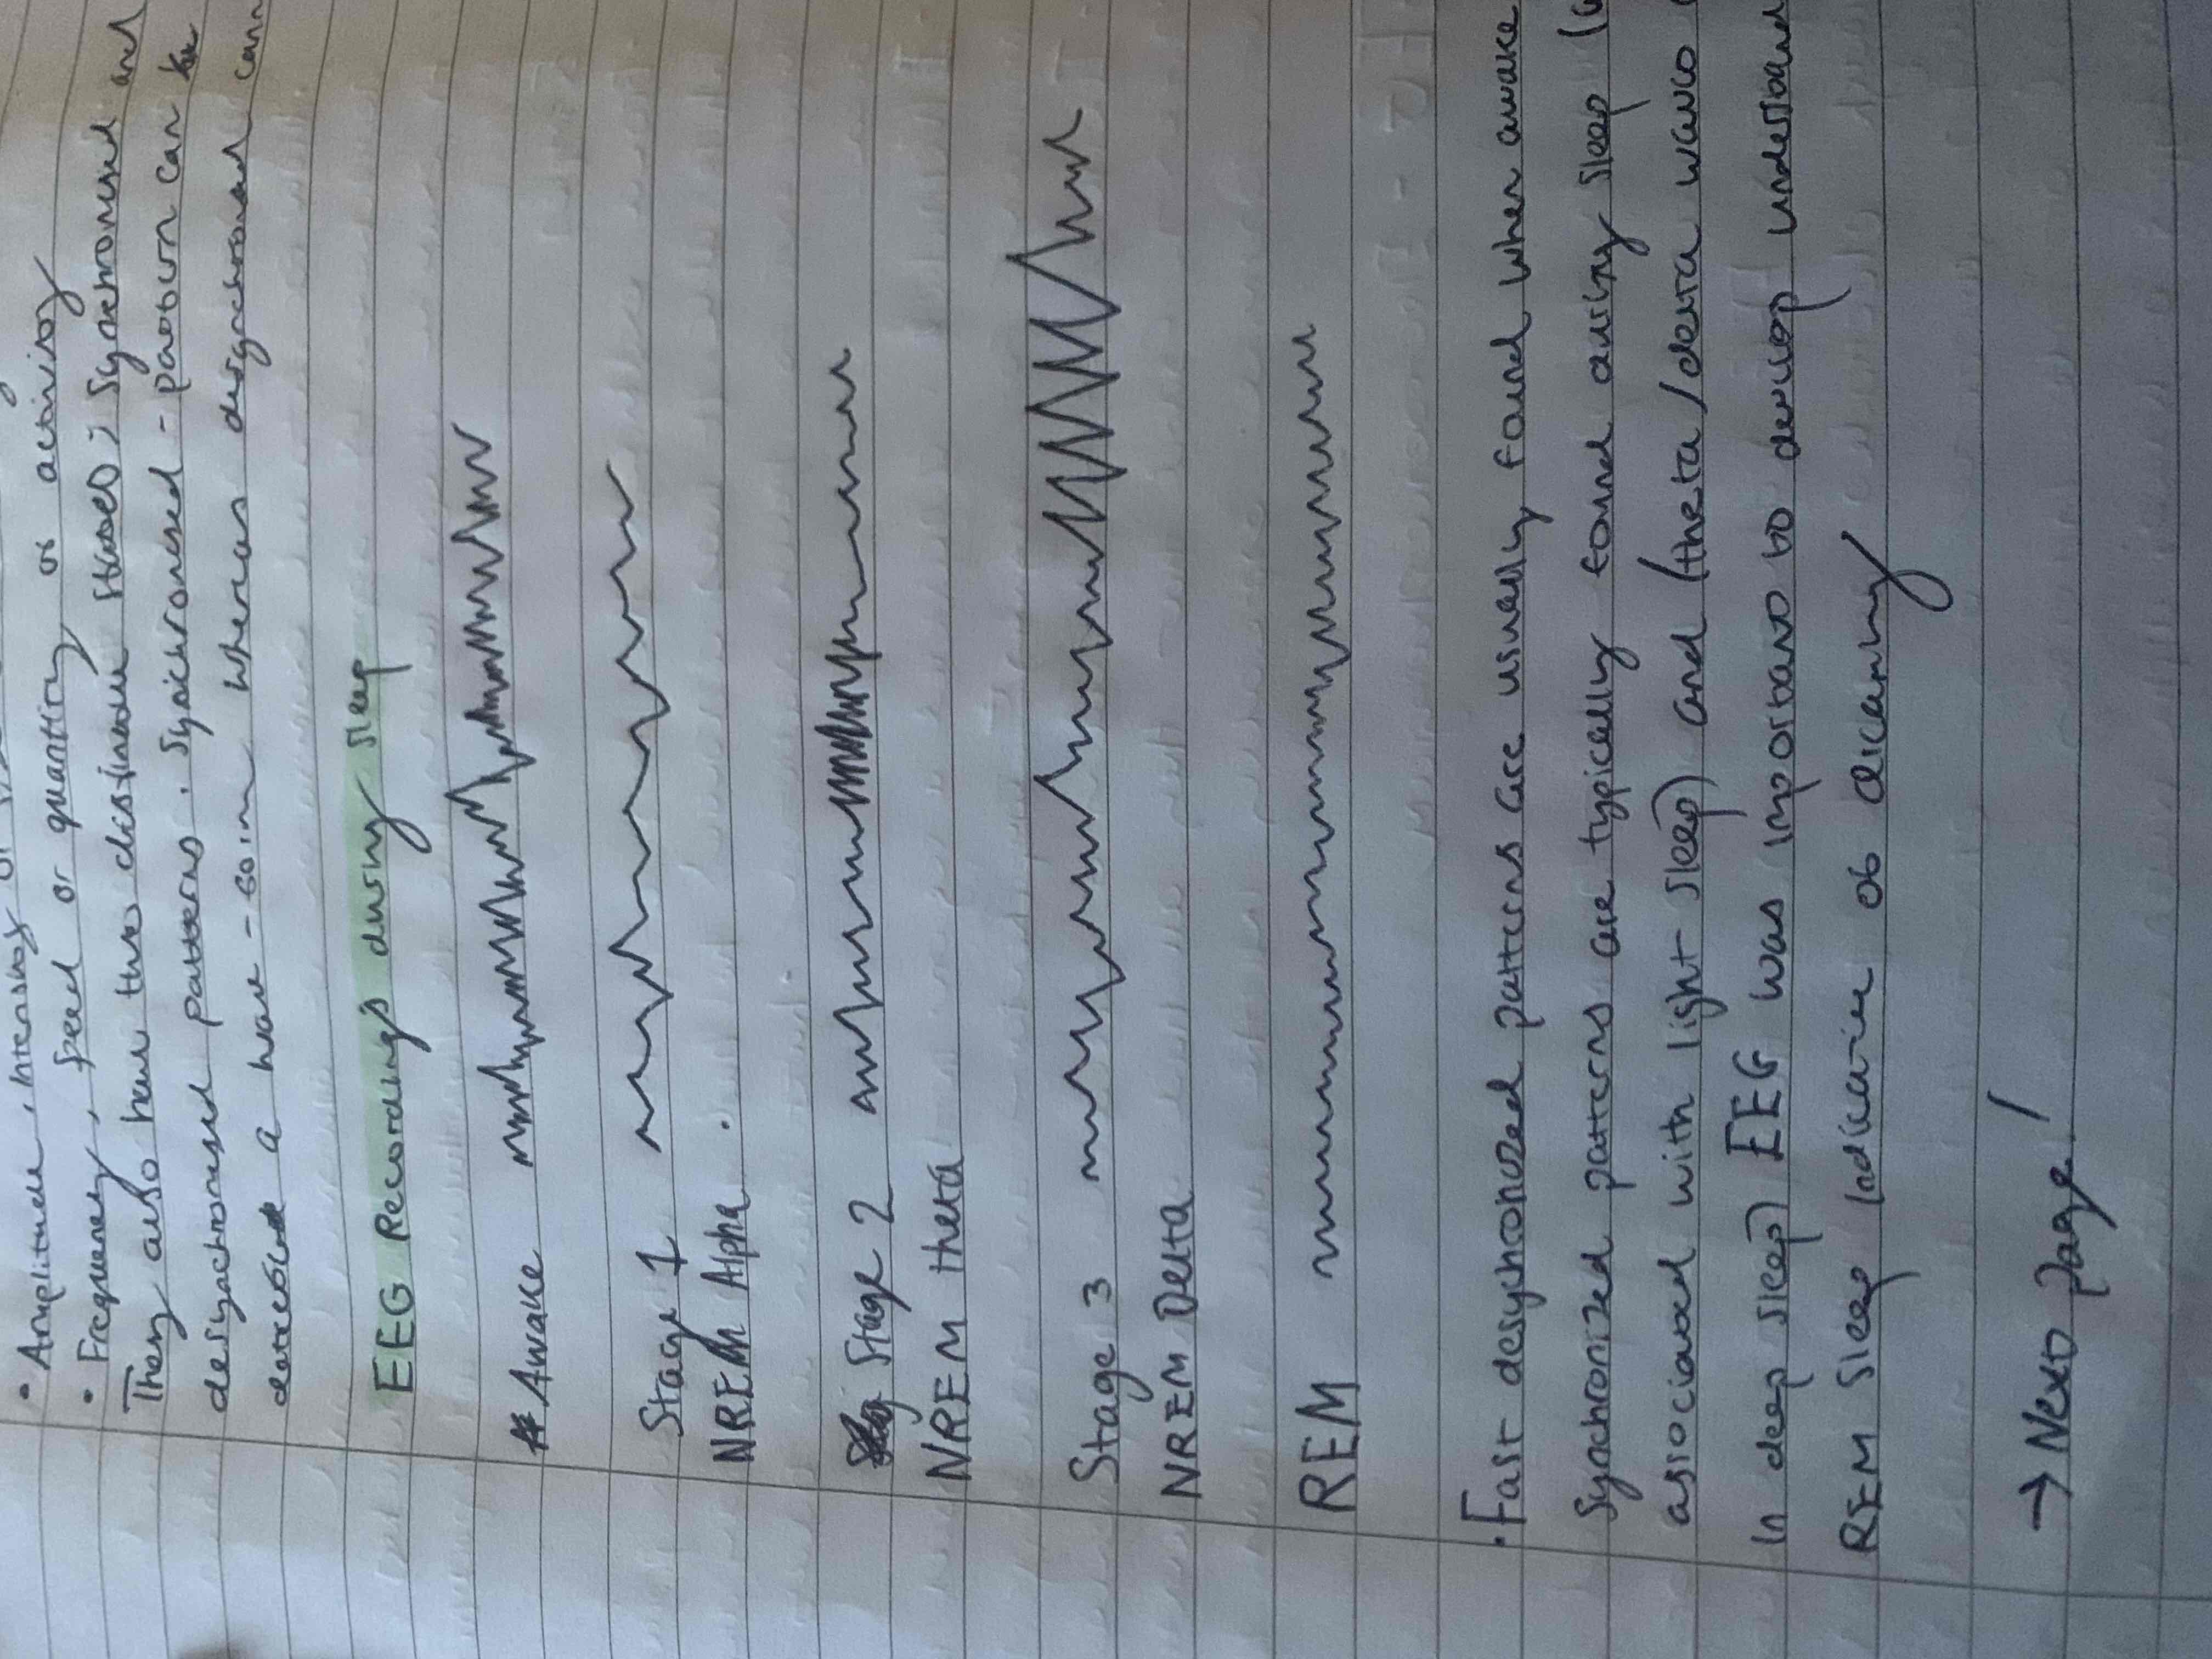 • Amplitude, intensity or size
• Frequency, speed or quantity of activity
They also have two distinctive states; synchronised and
desynchronised patterns. Synchronised - pattern can be
detected a wave-form whereas desynchronised cann
EEG Recordings during sleep
Awake
Stage 1
NREM Alpha.
Stage 2
NREM theta
Stage 3
NREM Delta
REM
•Fast desychronized patterns are usually found when awake
Synchronized patterns are typically found during sleep (a
associated with light sleep) and (theta/delta wave
in deep sleep) EEG was important to develop understand
REM sleep indicative of dreaming
→ Next page!